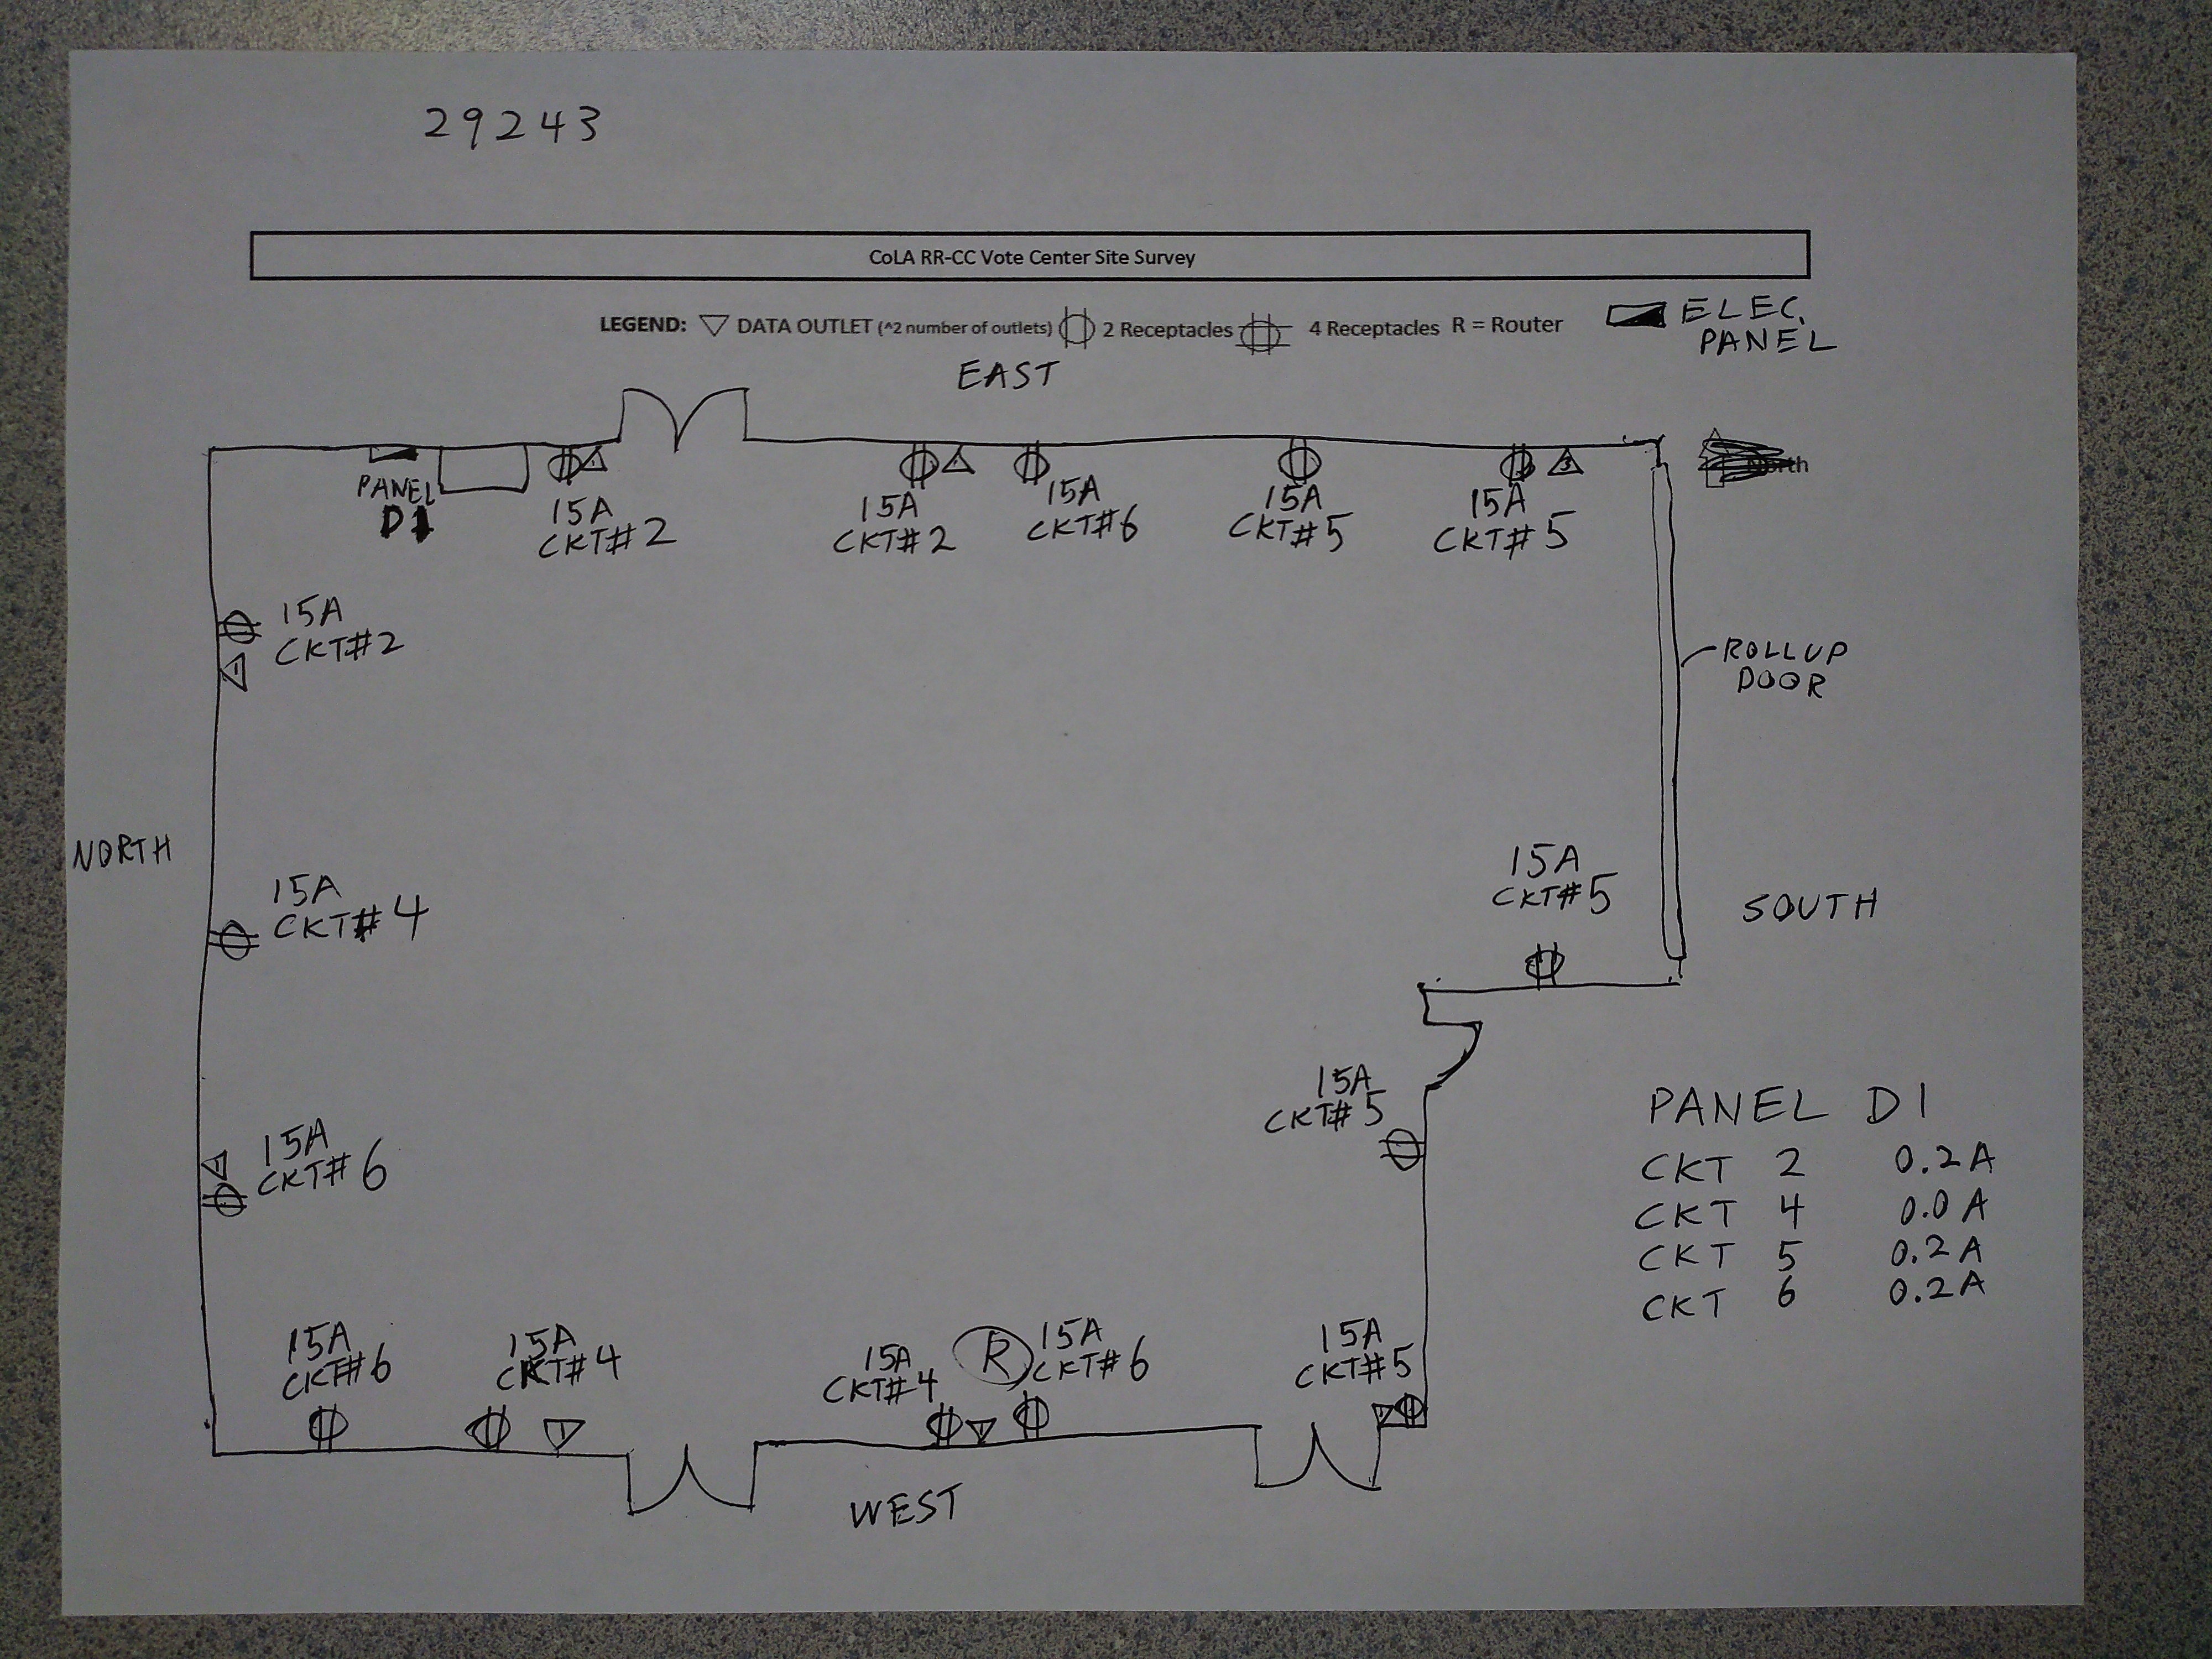 29243
CoLA RR-CC Vote Center Site Survey
LEGEND: DATA OUTLET (^2 number of outlets) 2 Receptacles 4 Receptacles R = Router
ELEC.
PANEL
EAST
North
PANEL
D1
15A
CKT#2
15A
CKT#2
15A
CKT#6
15A
CKT#5
15A
CKT#5
15A
CKT#2
ROLLUP
DOOR
NORTH
15A
CKT#4
15A
CKT#5
SOUTH
15A
CKT#5
15A
CKT#6
PANEL D1
CKT 2 0.2A
CKT 4 0.0A
CKT 5 0.2A
CKT 6 0.2A
15A
CKT#6
15A
CKT#4
15A
CKT#4
R
15A
CKT#6
15A
CKT#5
WEST